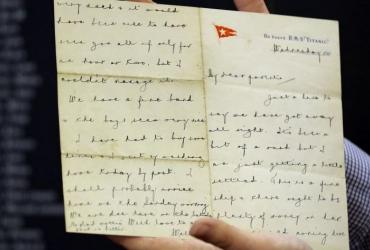 On board R.M.S. "Titanic".
Wednesday 191
My dear parents,
Just a line to
say we have got away
all right. It's been a
bit of a rush but I
am just getting a little
settled. This is a fine
ship & there ought to be
plenty of money on her
missed coming home
very much & it would
have been nice to have
seen you all if only for
an hour or two, but I
couldn't manage it.
We have a fine band
& the boys seem very nice.
I have had to buy some
linen & sent my washing
home today by post. I
shall probably arrive
home on the Sunday morning
We are due here on the
foot is better. With love to all
Wallace